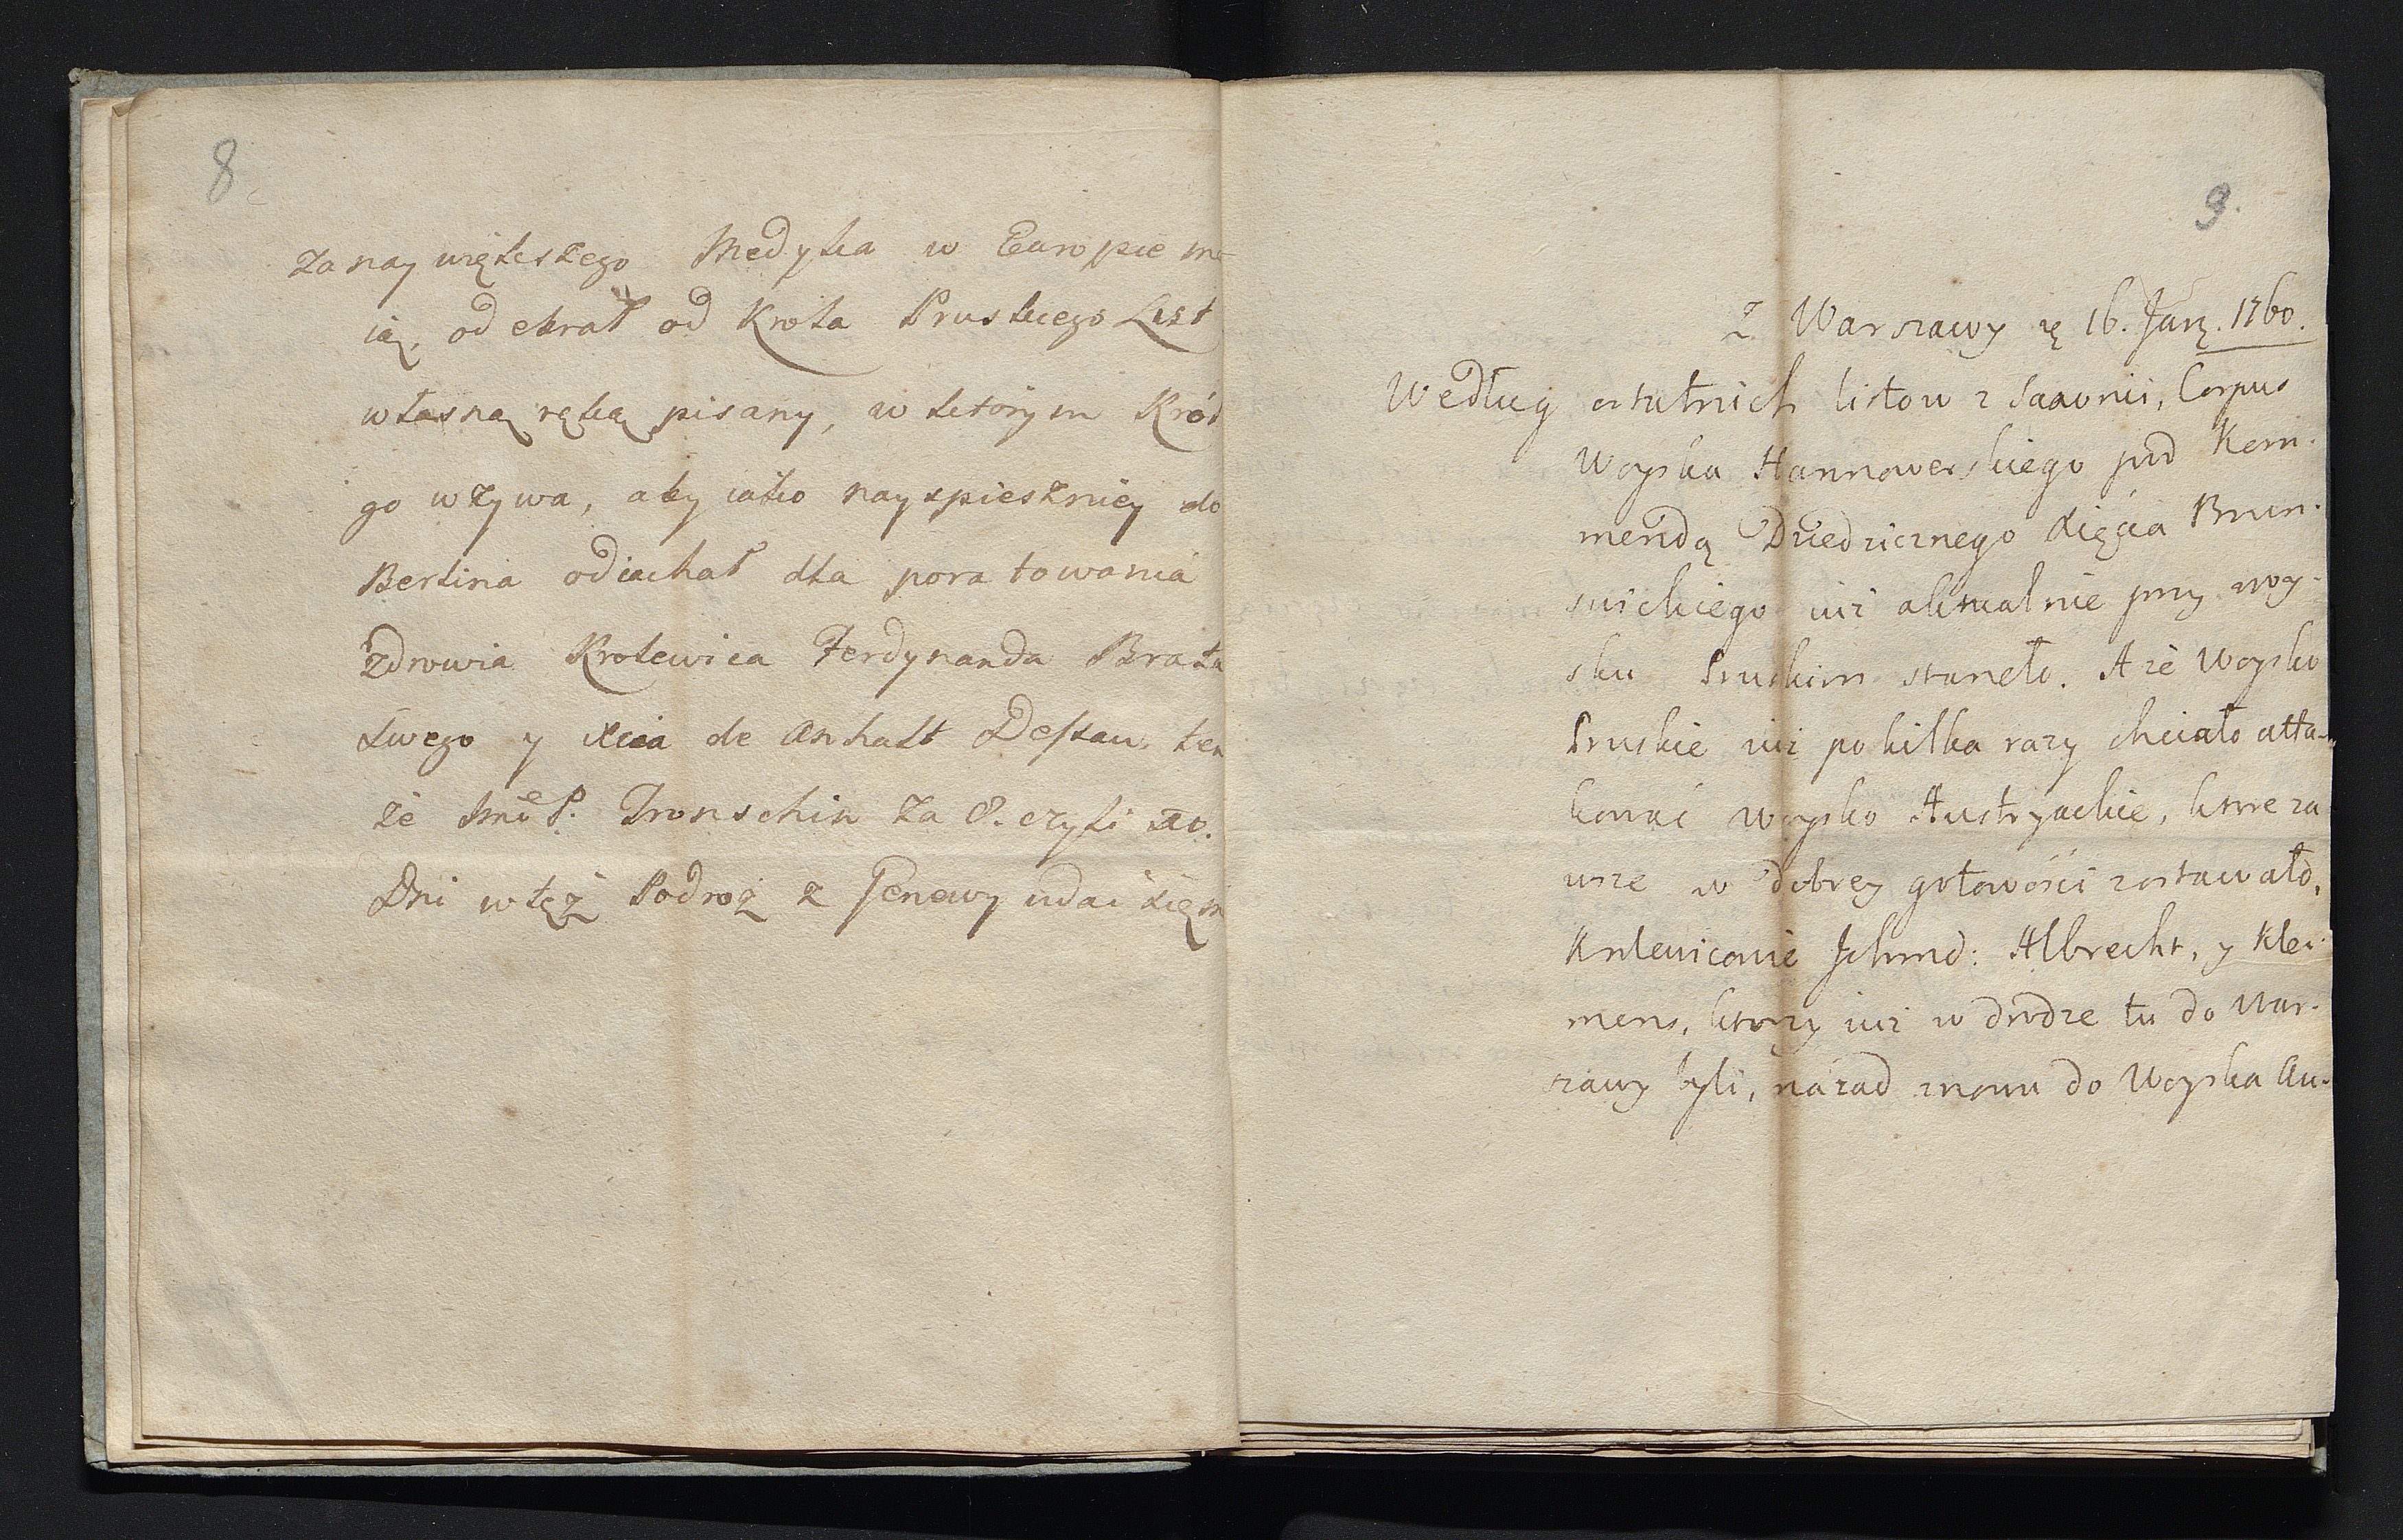 8
za nay większego Medyka w Europie ma-
ią, odebrał od Krola Pruskiego List
własną ręką pisany, w ktorym Król
go wzywa, aby iako nayspieszniey do
Berlina odiachał dla poratowania
zdrowia Krolewica Ferdynanda Brata
Swego y Xcia de Anhalt Dessau, ten
że Jmć P. Tronschin za 8. czyli 10.
Dni w tęż Podroż z Genewy udać się m
9.
Z Warszawy 16. Jan. 1760.
Według ostatnich listow z Saxonii, Corpus
Woyska Hannowerskiego pod Kom-
mendą Dziedzicznego Xięcia Brun-
swickiego iuż aktualnie przy woy-
sku Pruskim staneło. A że Woysko
Pruskie iuż po kilka razy chciało atta-
kować woysko Austryackie, ktore za
wsze w dobrey gotowości zostawało,
Krolewicowie Ichmć: Albrecht, y Kle-
mens, ktorzy iuż w drodze tu do War-
szawy byli, názad znowu do Woyska Au-